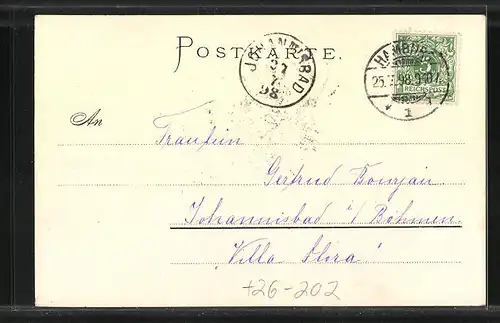 POSTKARTE.
JOHANNISBAD
98
HAMBURG
25. 98.
1
5
REICHSPOST
An
Fräulein
Gertrud Bourjau
Johannisbad i/ Böhmen
"Villa Flora"
+26-202